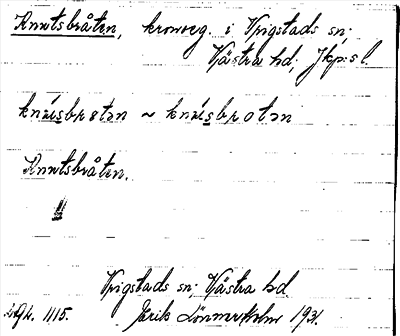 Knutsbråten, kronoeg. i Vrigstads sn;
Västra hd; Jkp:s l.
knúsbrotən ~ knúsbrotən
Knutsbråten.
Vrigstads sn; Västra hd
1115.
Erik Lönnerholm 1931.